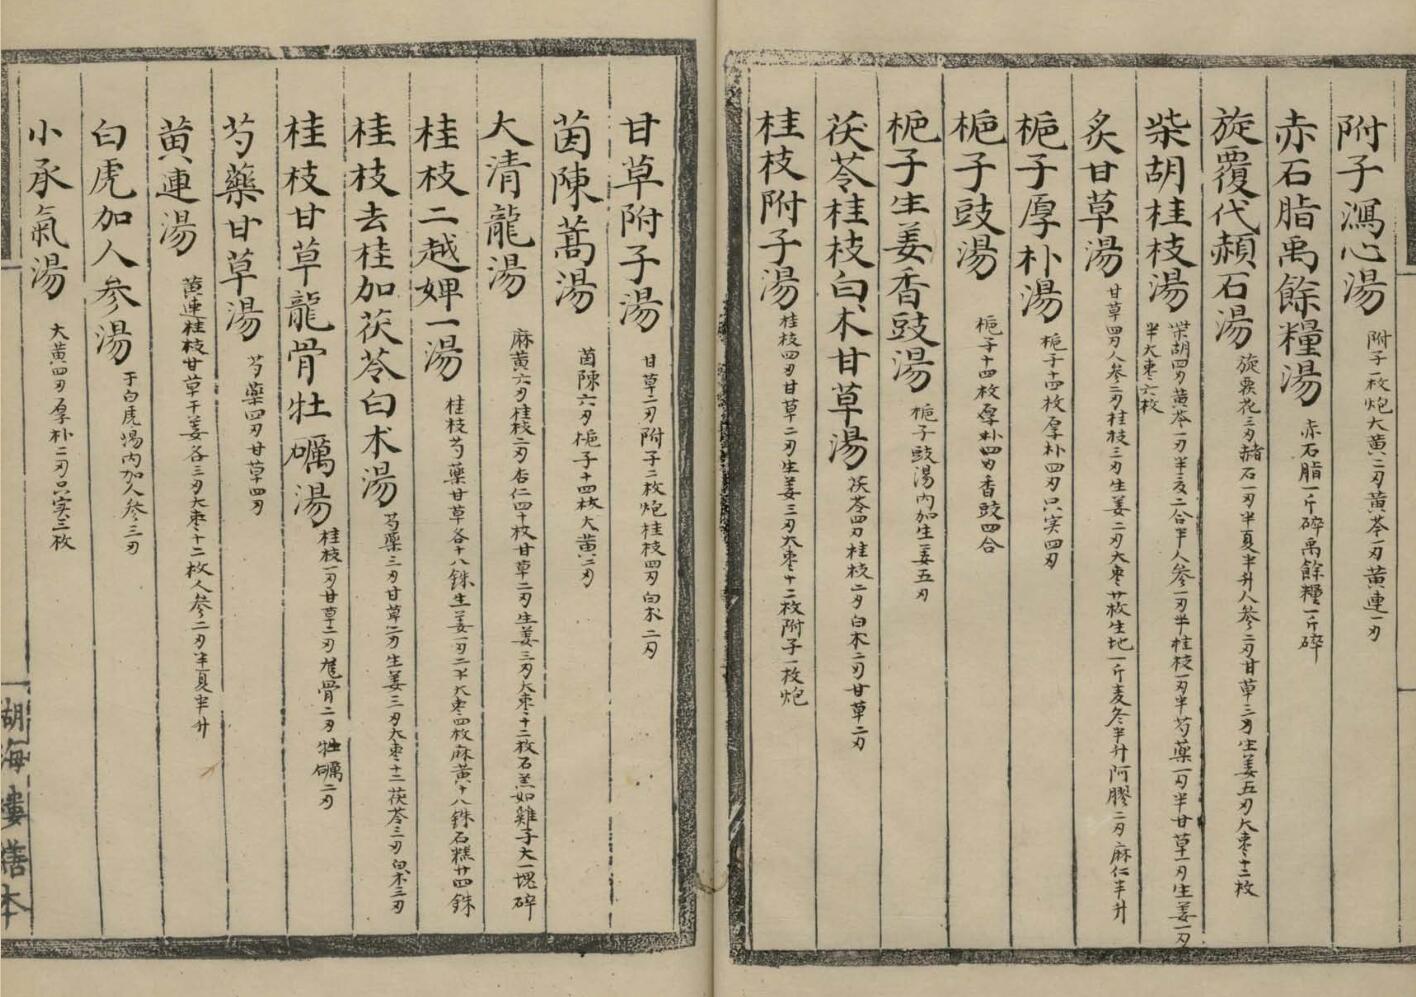 附子瀉心湯 附子一枚炮大黄二刃黄芩一刃黄連一刃
赤石脂禹餘糧湯 赤石脂一斤碎禹餘糧一斤碎
旋覆代赭石湯 旋覆花三刃赭石一刃半夏半升人參二刃甘草三刃生姜五刃大棗十二枚
柴胡桂枝湯 柴胡四刃黄芩一刃半夏二合半人參一刃半桂枝一刃半芍藥一刃半甘草一刃生姜一刃
半大棗六枚
炙甘草湯 甘草四刃人參二刃桂枝三刃生姜二刃大棗廿枚生地一斤麦冬半升阿膠二刃麻仁半升
梔子厚朴湯 梔子十四枚厚朴四刃只实四刃
梔子豉湯 梔子十四枚厚朴四刃香豉四合
梔子生姜香豉湯 梔子豉湯内加生姜五刃
茯苓桂枝白术甘草湯 茯苓四刃桂枝二刃白术二刃甘草二刃
桂枝附子湯 桂枝四刃甘草二刃生姜三刃大棗十二枚附子一枚炮
甘草附子湯 甘草二刃附子二枚炮桂枝四刃白术二刃
茵陳蒿湯 茵陳六刃梔子十四枚大黄二刃
大清龍湯 麻黄六刃桂枝二刃杏仁四十枚甘草二刃生姜三刃大棗十二枚石羔如雞子大一塊碎
桂枝二越婢一湯 桂枝芍藥甘草各十八銖生姜一刃二千大棗四枚麻黄十八銖石糕廿四銖
桂枝去桂加茯苓白术湯 芍藥三刃甘草二刃生姜三刃大棗十二茯苓三刃白术三刃
桂枝甘草龍骨牡礪湯 桂枝一刃甘草二刃龙骨二刃牡礪二刃
芍藥甘草湯 芍藥四刃甘草四刃
黄連湯 黄連桂枝甘草干姜各三刃大棗十二枚人參二刃半夏半升
白虎加人參湯 于白虎湯内加人參三刃
小承氣湯 大黄四刃厚朴二刃只实三枚
湖海樓
本